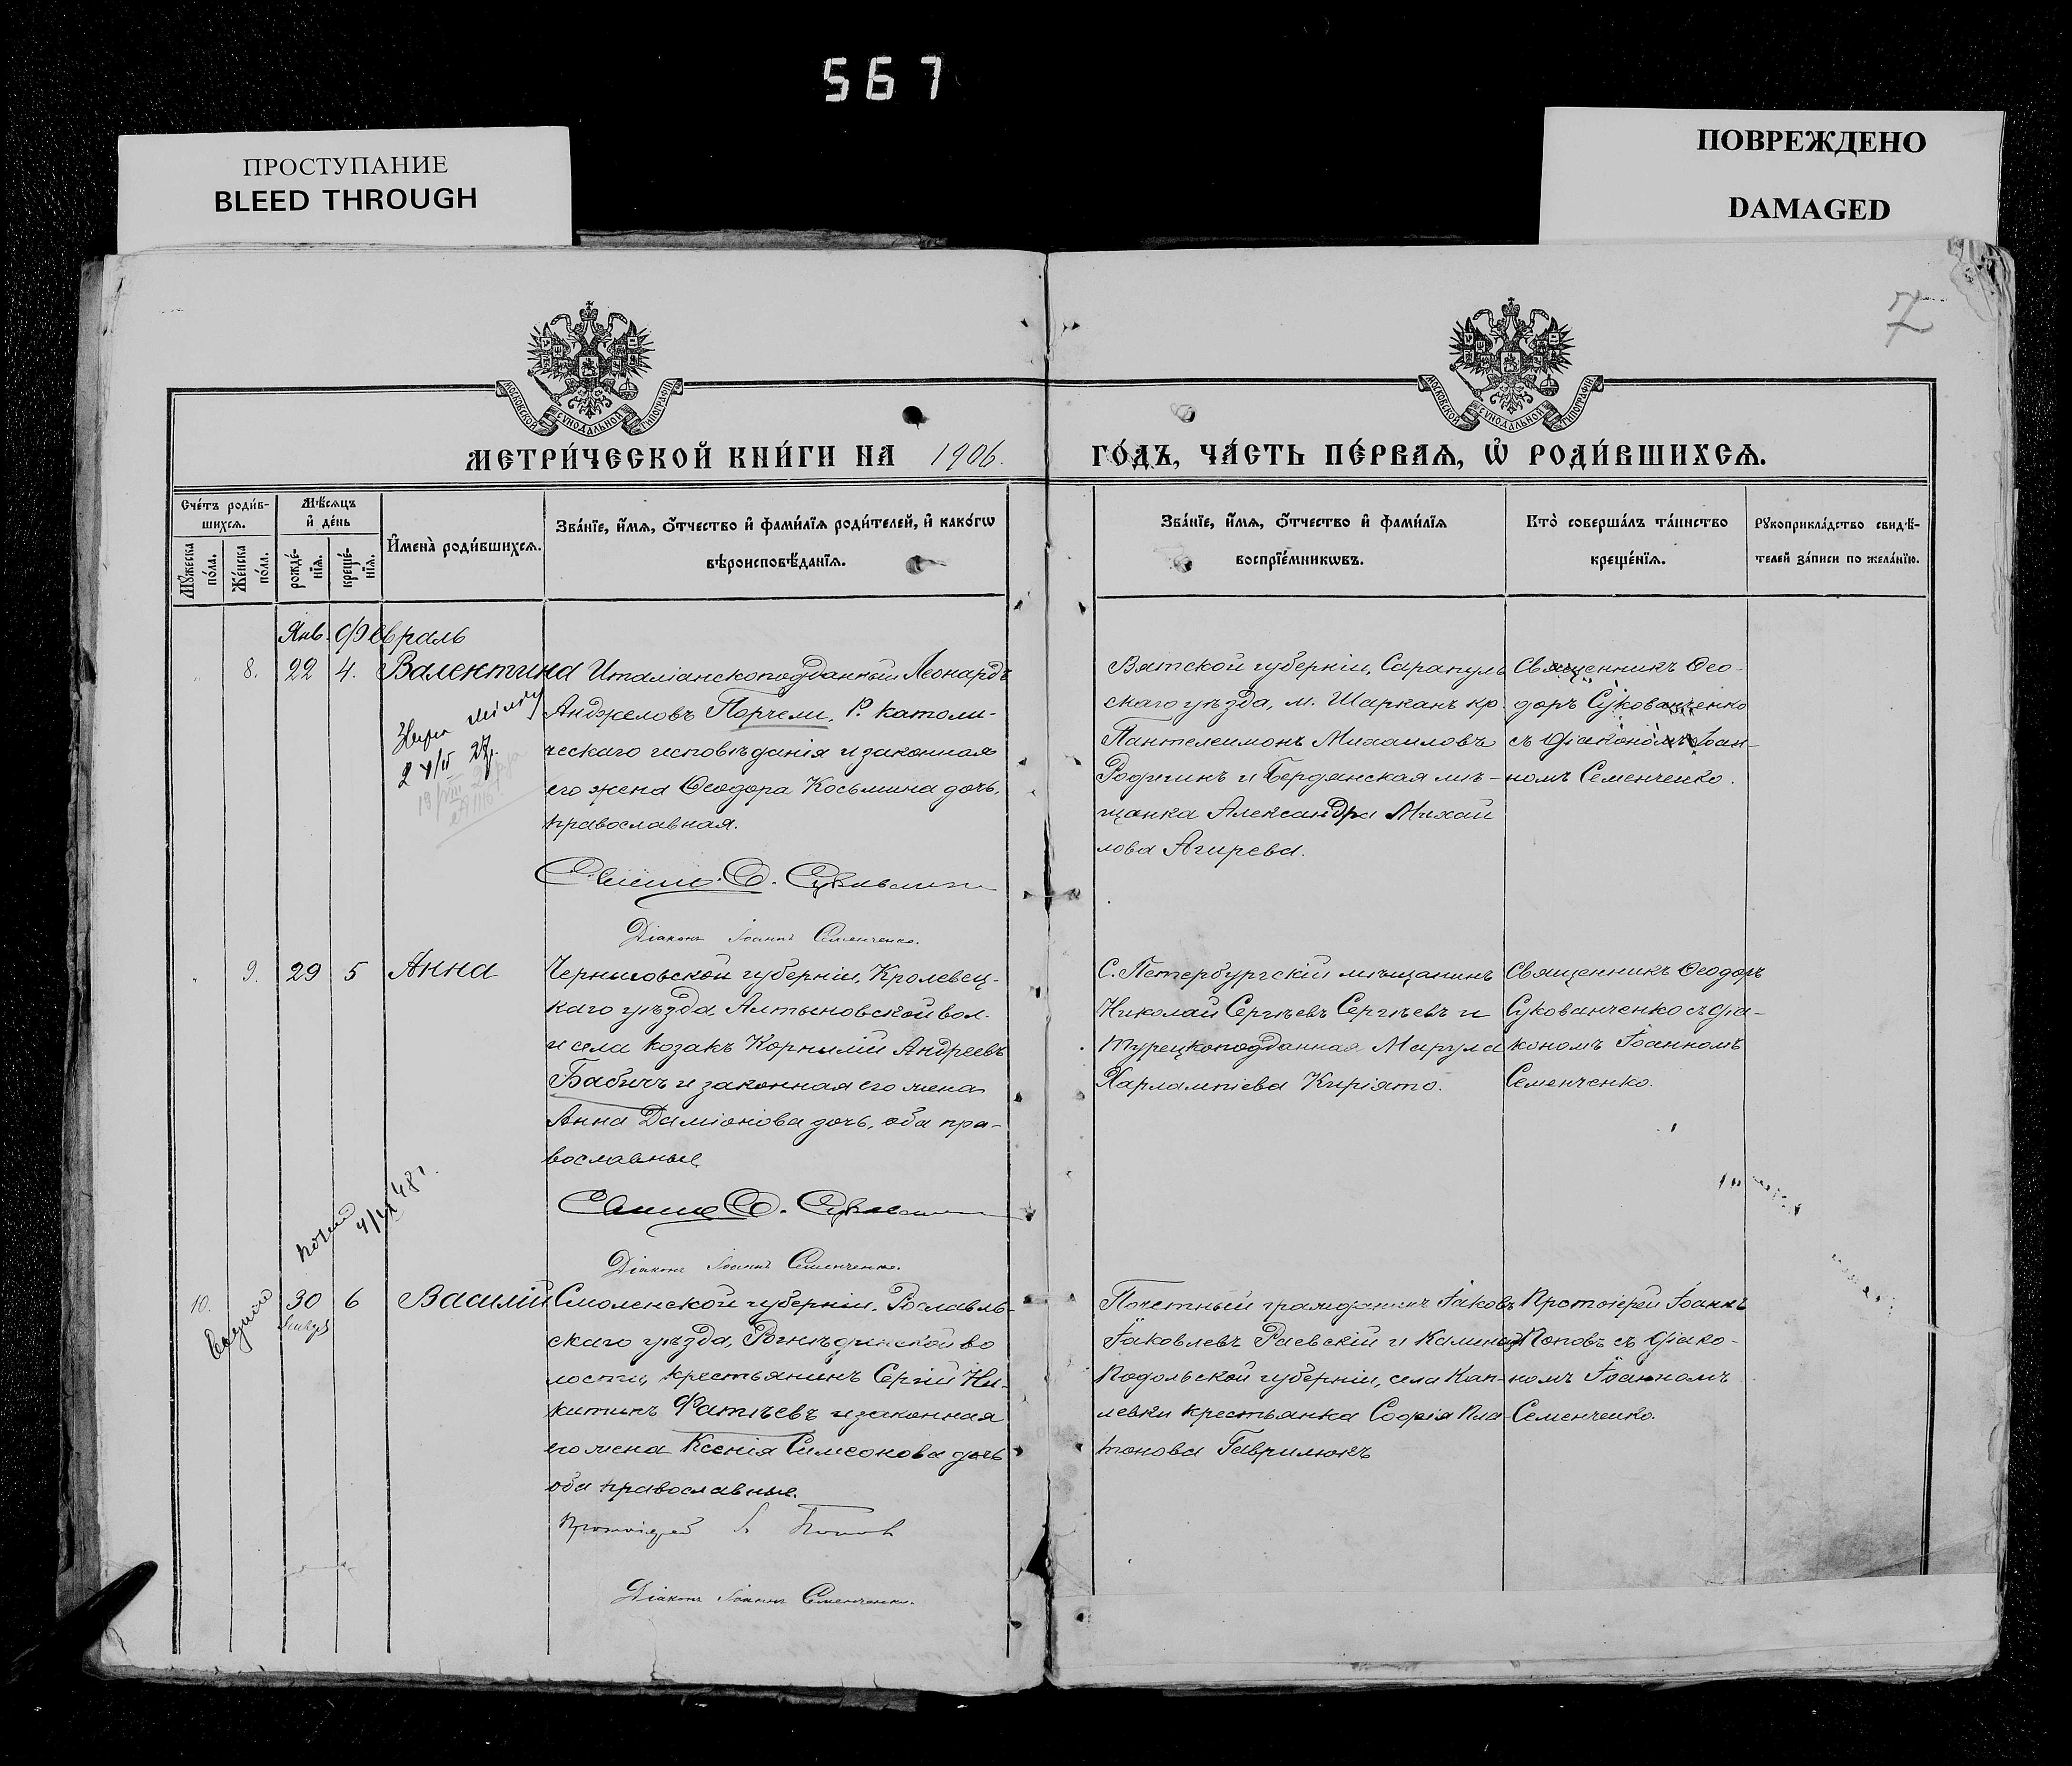 567
ПРОСТУПАНИЕ
BLEED THROUGH
ПОВРЕЖДЕНО
DAMAGED
7
МОСКОВСКОЙ СѴНОДАЛЬНОЙ ТИПОГРАФІИ
МОСКОВСКОЙ СѴНОДАЛЬНОЙ ТИПОГРАФІИ
МЕТРИ́ЧЕСКОЙ КНИ́ГИ НА 1906. ГО́ДЪ, ЧА́СТЬ ПЕ́РВАѦ, Ѡ҆ РОДИ́ВШИХСѦ.
Сче́тъ роди́в-
шихсѧ.
Мꙋ́жеска по́ла.
Же́нска по́ла.
Мѣ́сѧцъ
и҆ де́нь
рожде́-
нїѧ.
креще́-
нїѧ.
И҆мена̀ роди́вшихсѧ.
Зва́нїе, и҆́мѧ, ѻ҆́тчество и҆ фами́лїѧ роди́телей, и҆ како́гѡ
вѣроисповѣ́данїѧ.
Зва́нїе, и҆́мѧ, ѻ҆́тчество и҆ фами́лїѧ
воспрїе́мникѡвъ.
Кто̀ соверша́лъ та́инство
креще́нїѧ.
Рꙋкоприкла́дство свидѣ́-
телей за́писи по жела́нїю.
Янв. Февраль
8. 22 4. Валентина
Италіанскоподданный Леонардъ
Анджеловъ Порчели, Р. католи-
ческаго исповѣданія и законная
его жена Ѳеодора Косьмина дочь,
православная.
Діаконъ Іоаннъ Семенченко.
Вятской губерніи, Сарапуль
скаго уѣзда, м. Шарканъ кр.
Пантелеимонъ Михаиловъ
Родигинъ и Бердянская мѣ-
щанка Александра Михай
лова Агирева.
Священникъ Ѳео-
доръ Сукованченко
съ діакономъ Іоан-
номъ Семенченко.
9. 29 5 Анна
Черниговской губерніи, Кролевец-
каго уѣзда, Алтыновской вол.
и села козакъ Корнилій Андреевъ
Бабичъ и законная его жена
Анна Даміанова дочь, оба пра-
вославные
Діаконъ Іоаннъ Семенченко.
С. Петербургскій мѣщанинъ
Николай Сергѣевъ Сергѣевъ и
Турецкоподданная Марула
Харлампіева Киріято.
Священникъ Ѳеодоръ
Сукованченко съ діа-
кономъ Іоанномъ
Семенченко.
10. 30 6 Василій
Смоленской губерніи, Рославль-
скаго уѣзда, Рогнѣдинской во
лости, крестьянинъ Сергій Ни-
китинъ Фатѣевъ и законная
его жена Ксенія Симеонова дочь
оба православные.
Протоіерей І. Попов
Діаконъ Іоаннъ Семенченко.
Почетный гражданинъ Іаковъ
Іаковлевъ Раевскій и
Подольской губерніи, села Кап-
левки крестьянка Софія Пла-
тонова Гаврилюкъ
Протоіерей Іоаннъ
Поповъ съ діако-
номъ Іоанномъ
Семенченко.